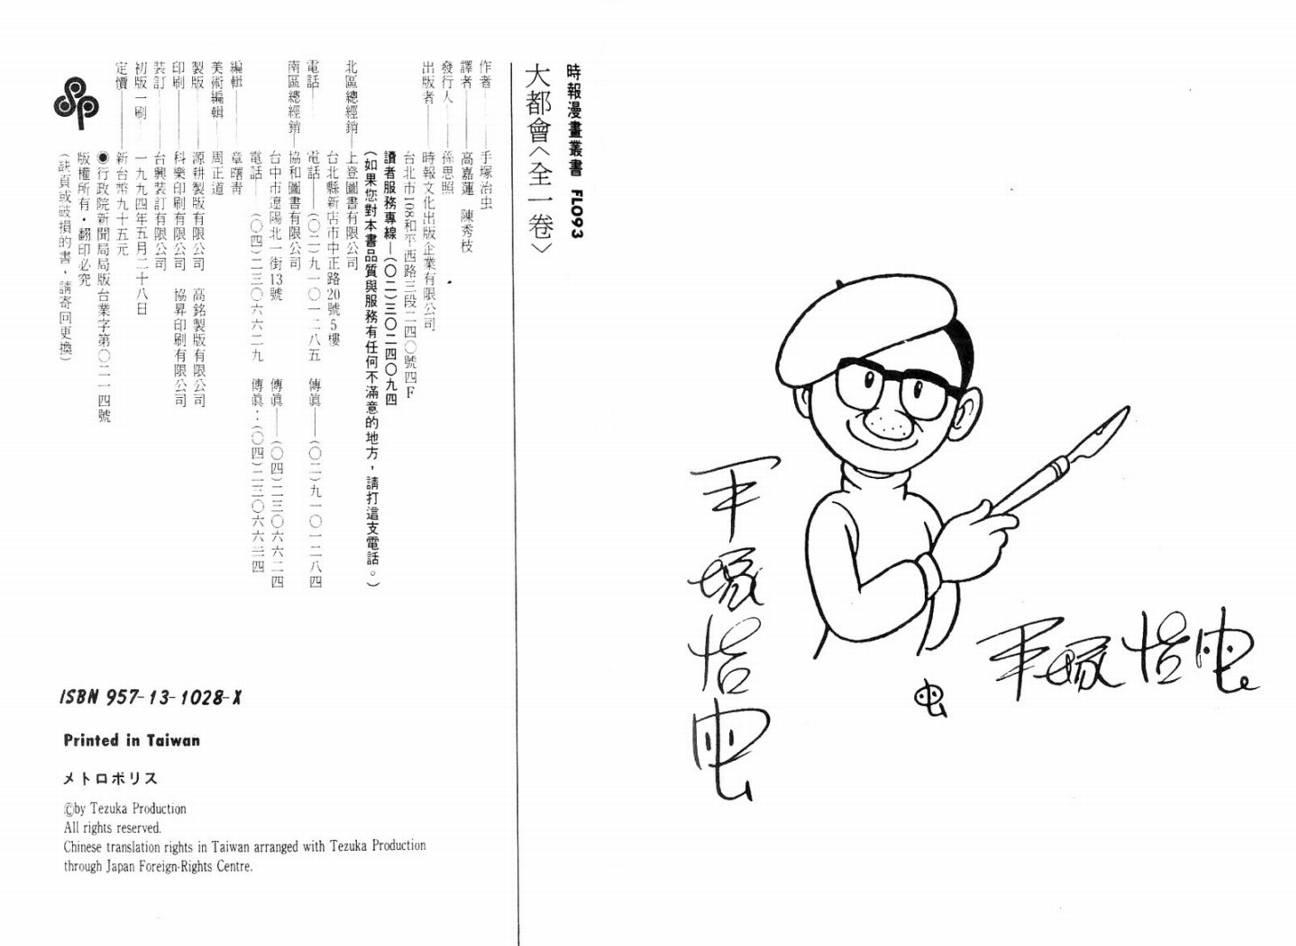 時報漫畫叢書 FL093
大都會〈全一卷〉
作者——手塚治虫
譯者——高嘉蓮 陳秀枝
發行人——孫思照
出版者——時報文化出版企業有限公司
台北市108和平西路三段二四〇號四F
讀者服務專線—(〇二)三〇二四〇九四
(如果您對本書品質與服務有任何不滿意的地方，請打這支電話。)
北區總經銷—上登圖書有限公司
台北縣新店市中正路20號5樓
電話——(〇二)九一〇一二八五 傳眞——(〇二)九一〇一二八四
南區總經銷—協和圖書有限公司
台中市遼陽北一街13號 傳眞——(〇四)二三〇六六二四
電話——(〇四)二三〇六六二九 傳眞：(〇四)二三〇六六三四
編輯——章曙靑
美術編輯——周正道
製版——源耕製版有限公司 高銘製版有限公司
印刷——科樂印刷有限公司 協昇印刷有限公司
裝訂——台興裝訂有限公司
初版一刷——一九九四年五月二十八日
定價——新台幣九十五元
◉行政院新聞局局版台業字第〇二一四號
版權所有・翻印必究
(缺頁或破損的書，請寄回更換)
ISBN 957-13-1028-X
Printed in Taiwan
メトロポリス
©by Tezuka Production
All rights reserved.
Chinese translation rights in Taiwan arranged with Tezuka Production
through Japan Foreign-Rights Centre.
手塚治虫
虫
手塚治虫